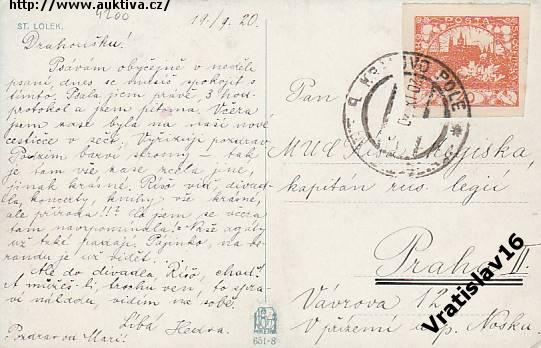 http://www.auktiva.cz/
4200
ST. LOLEK.
19/9. 20.
Drahoušku!
Psávám obyčejně v neděli
psaní, dnes se musíš spokojit s
tímto. Psala jsem právě 3 hod.
protokol a jsem pitomá. Včera
jsem zase byla na naší nové
cestičce v
Vyřizuji pozdrav.
Podzim barví stromy – tak
je tam vše zase zcela jiné,
jinak krásné.
divad-
la, koncerty, knihy vše krásné,
ale příroda!!? Co jsem se včera
tam navzpomínala!
už také padají.
na be-
randu je už vidět...
Ale do divadla,
choď!
A můžeš-li, trochu ven, to spra-
ví náladu, vidím na sobě.
Líbá Hedva.
Pozdrav od Mari!
651-8
POŠTA
POLE
Pan
MUC
kapitán rus. legií
Praha II.
Vávrova 12
V přízemí u p. Nosku.
Vratislav16